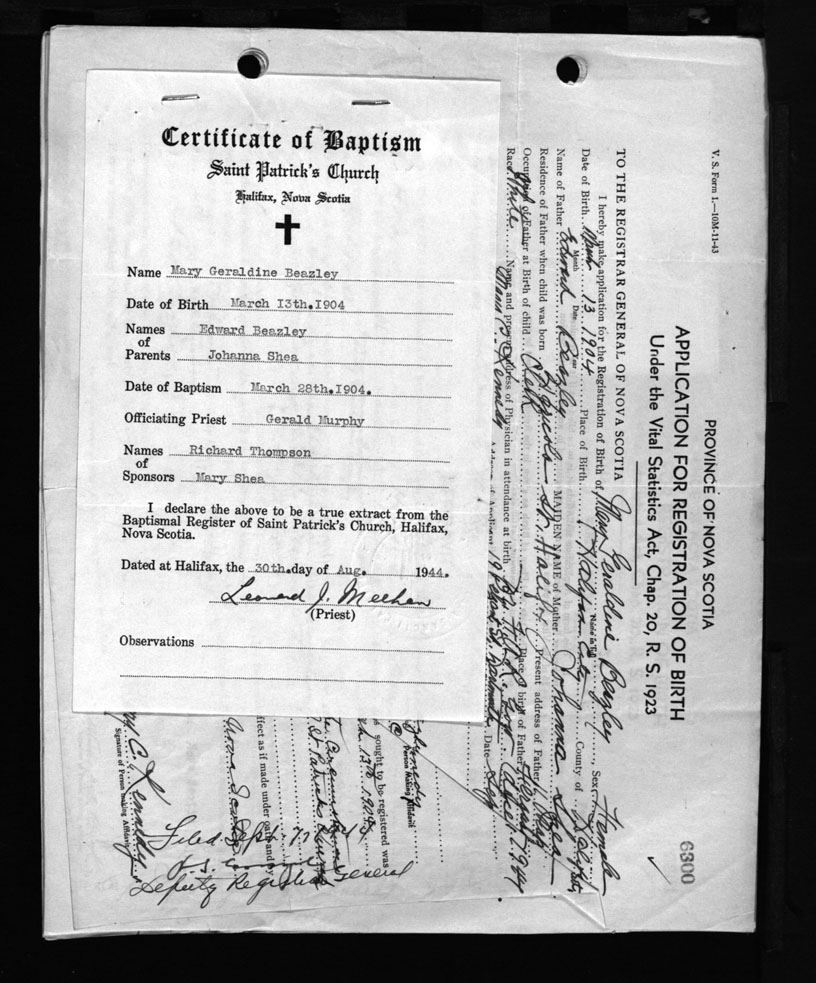 Certificate of Baptism
Saint Patrick's Church
Halifax, Nova Scotia
Name Mary Geraldine Beazley
Date of Birth March 13th.1904
Names Edward Beazley
of
Parents Johanna Shea
Date of Baptism March 28th.1904.
Officiating Priest Gerald Murphy
Names Richard Thompson
of
Sponsors Mary Shea
I declare the above to be a true extract from the
Baptismal Register of Saint Patrick's Church, Halifax,
Nova Scotia.
Dated at Halifax, the 30th.day of Aug. 1944.
Leonard J. Meehan
(Priest)
Observations
V. S. Form 1.—10M-11-43
PROVINCE OF NOVA SCOTIA
APPLICATION FOR REGISTRATION OF BIRTH
Under the Vital Statistics Act, Chap. 20, R. S. 1923
6300
TO THE REGISTRAR GENERAL OF NOVA SCOTIA
I hereby make application for the Registration of Birth of Mary Geraldine Beazley Sex Female
Date of Birth 13 1904 Place of Birth Halifax City County of Halifax
Month Date Year
Name of Father Edward Beazley MAIDEN NAME of Mother Johanna Shea
Residence of Father when child was born St. Halifax Present address of Father
Occupation of Father at Birth of child Clerk Place of birth of Father
Race White Name and present address of Physician in attendance at birth
Address of Applicant Date
Kennedy
Person Making Affidavit
sought to be registered was
13th 1904
St Patricks
effect as if made under oath and by
Nova Scotia
C. Kennedy
Signature of Person Making Affidavit
Filed Sept. 7
Deputy Registrar General